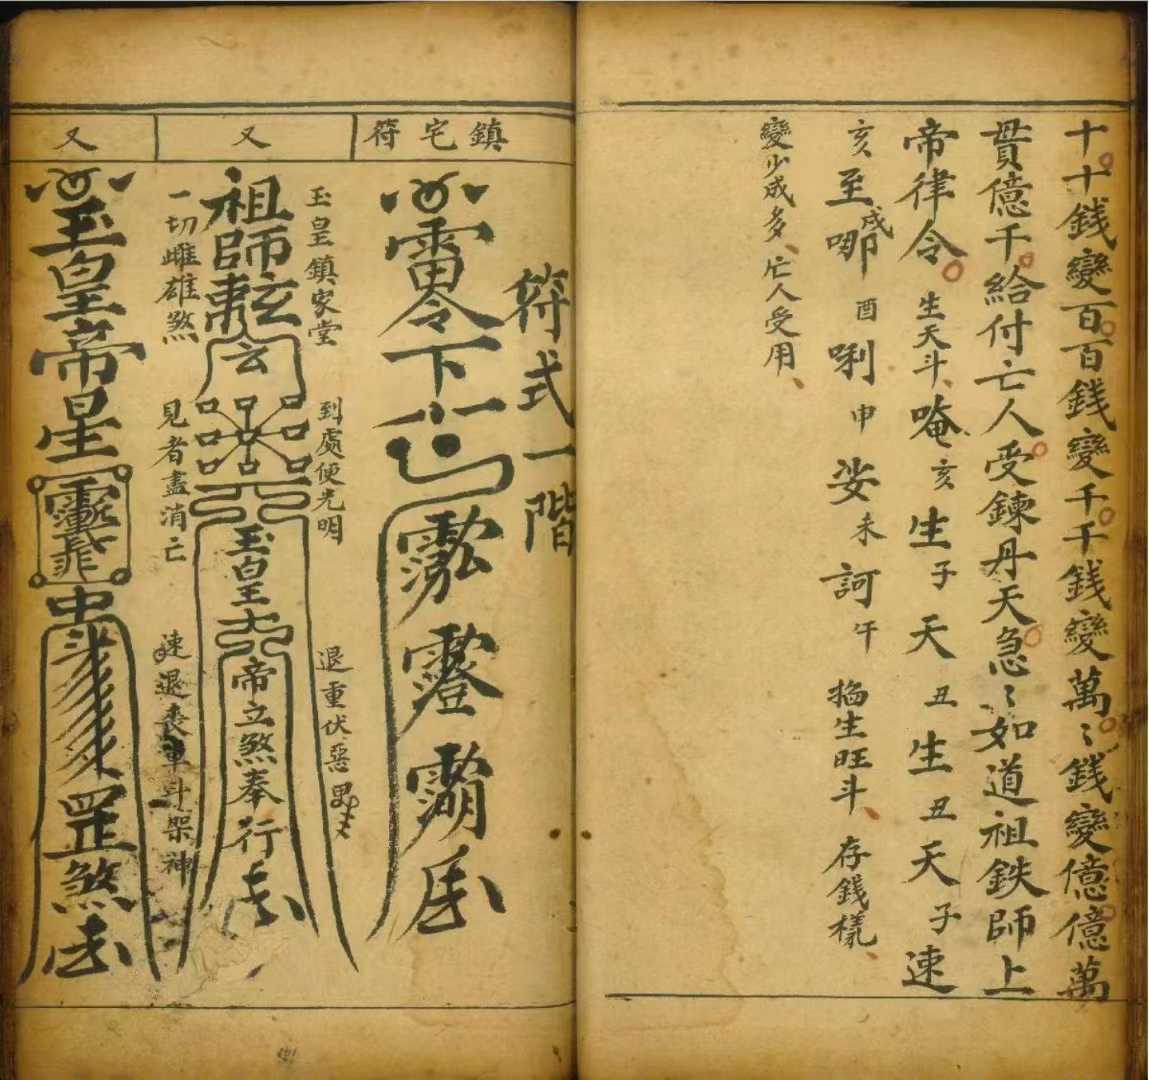 十十錢變百百錢變千千錢變萬〻錢變億億萬
貫億千給付亡人受鍊丹天急〻如道祖鉄師上
帝律令生天斗唵亥生子天丑生丑天子速
亥至戌哪酉唎申娑未訶午掐生旺斗存錢樣
變少成多亡人受用
符式一階
鎮宅符
雷令下
玉皇鎮家堂 到處便光明 退重伏惡
又
祖師
玄
玉皇
帝立煞奉行
一切雌雄煞 見者盡消亡 速退喪車斗架神
又
玉皇帝星
中斗
罡煞